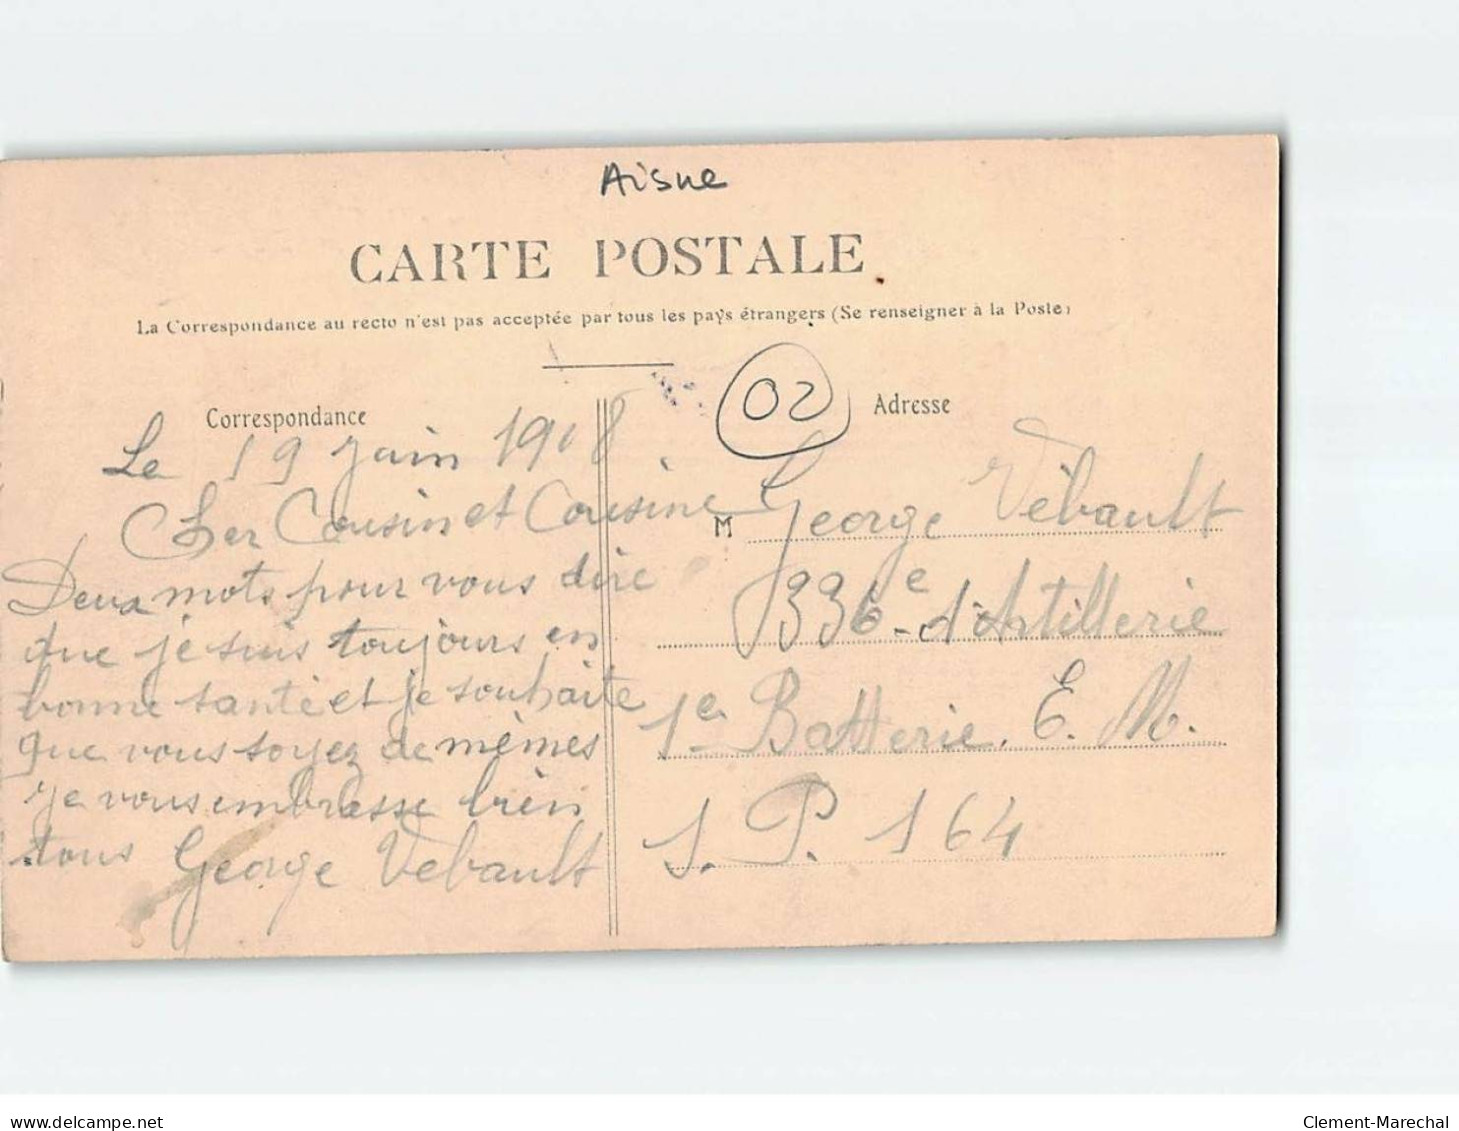 Aisne
CARTE POSTALE
La Correspondance au recto n'est pas acceptée par tous les pays étrangers (Se renseigner à la Poste)
02
Correspondance
Le 19 Juin 1918
Cher Cousin et Cousine
Deux mots pour vous dire
que je suis toujours en
bonne santé et je souhaite
que vous soyez de mêmes
Je vous embrasse bien
tous George Vébault
Adresse
M George Vébault
336e d'Artillerie
1e Batterie. E. M.
S. P. 164
delcampe.net
Clement-Marechal